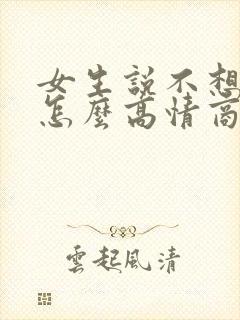 女生說不想
怎麼高情商
雲起風清